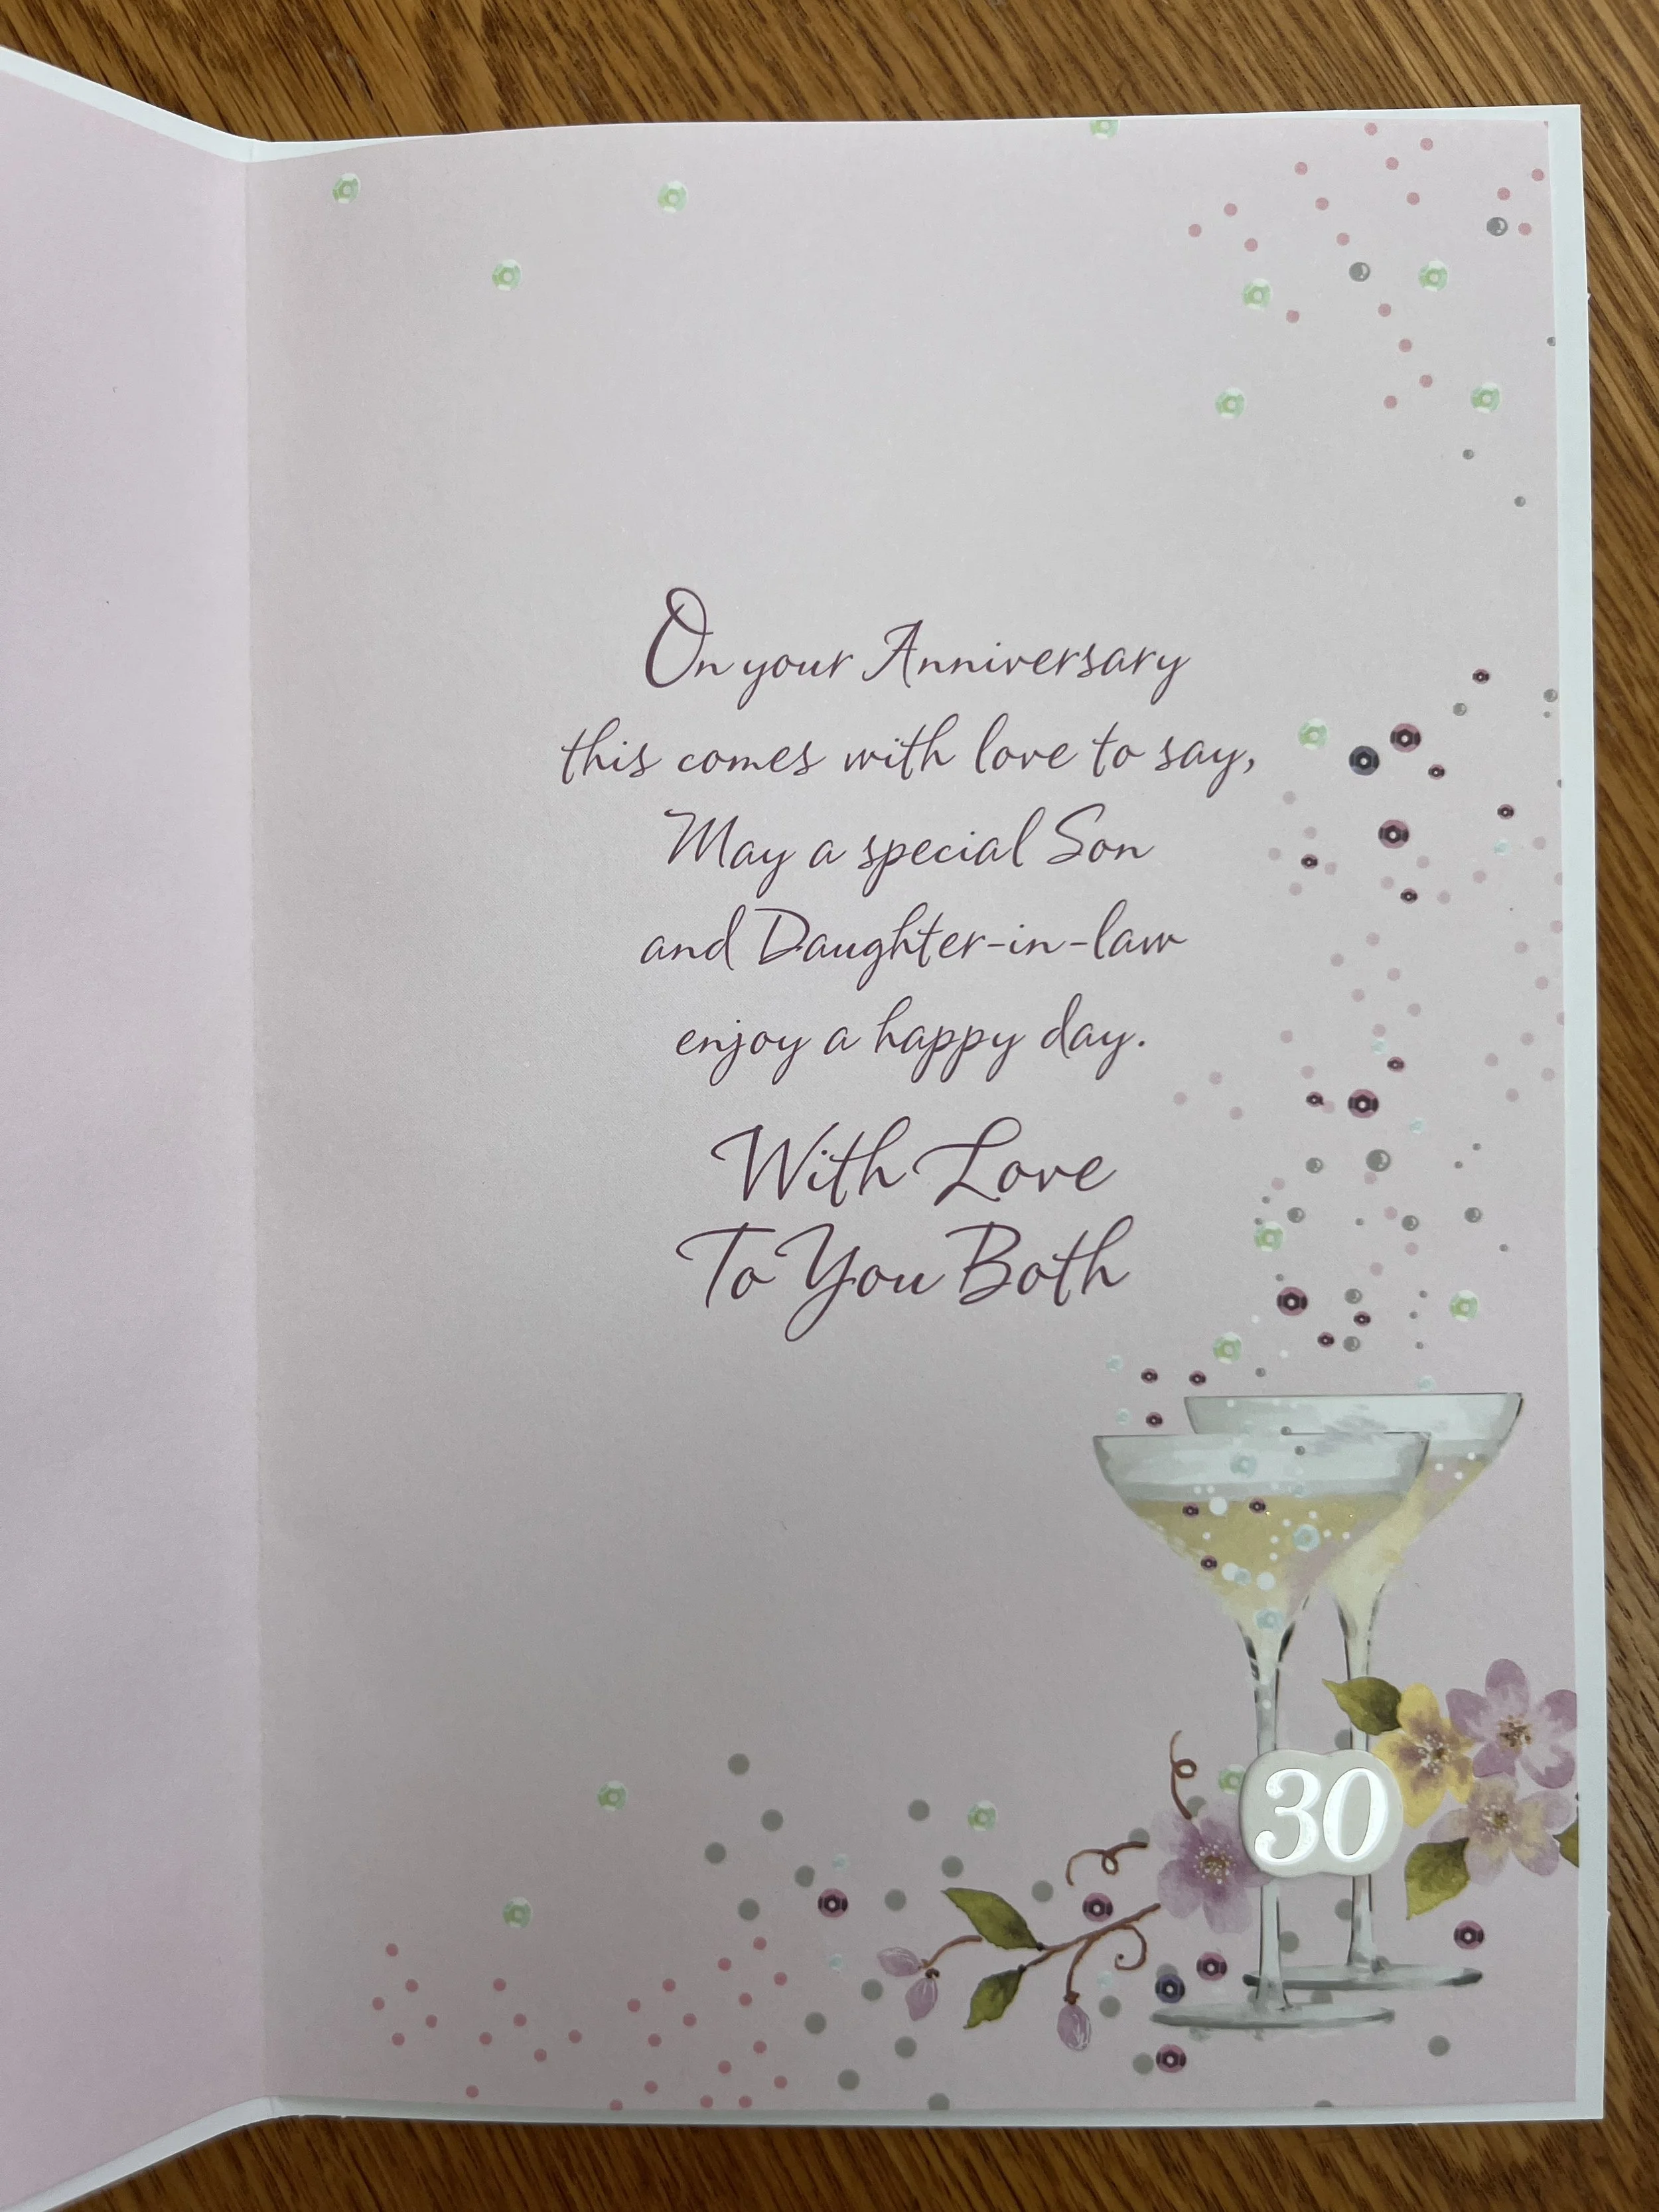 On your Anniversary
this comes with love to say,
May a special Son
and Daughter-in-law
enjoy a happy day.
With Love
To You Both
30